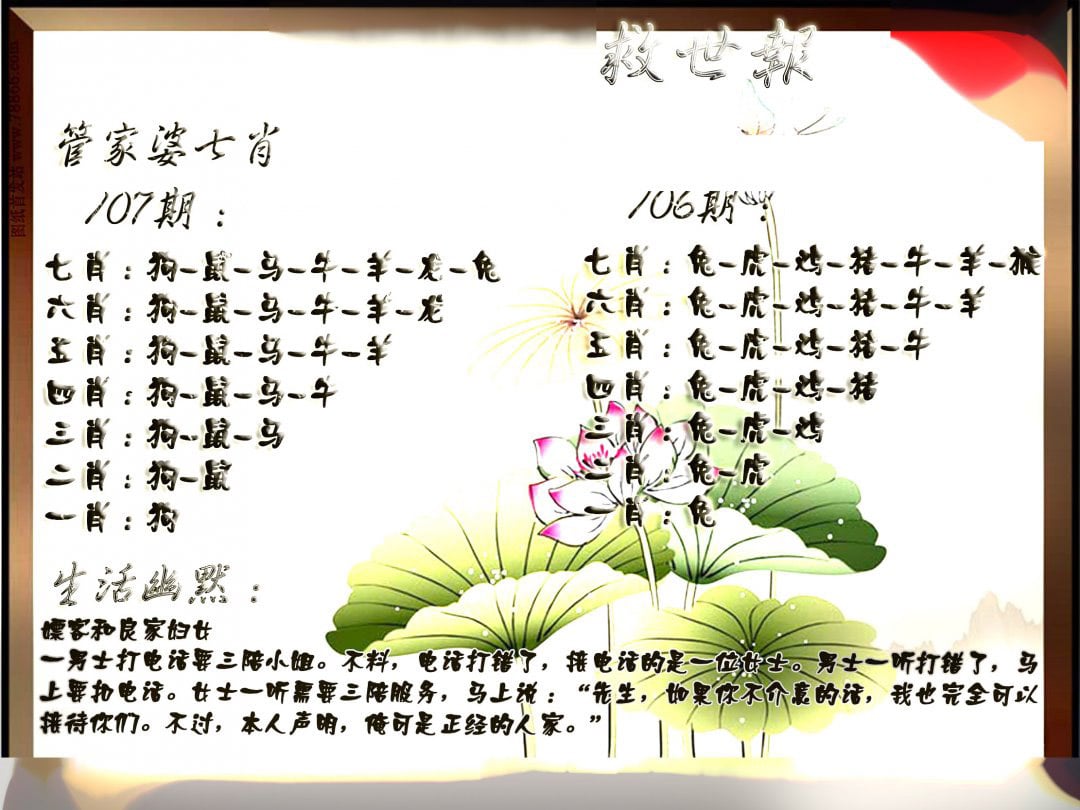 救世報
图纸首发站 www.78866.com
管家婆七肖
107期：
七肖：狗-鼠-马-牛-羊-龙-兔
六肖：狗-鼠-马-牛-羊-龙
五肖：狗-鼠-马-牛-羊
四肖：狗-鼠-马-牛
三肖：狗-鼠-马
二肖：狗-鼠
一肖：狗
106期：
七肖：兔-虎-鸡-猪-牛-羊-猴
六肖：兔-虎-鸡-猪-牛-羊
五肖：兔-虎-鸡-猪-牛
四肖：兔-虎-鸡-猪
三肖：兔-虎-鸡
二肖：兔-虎
一肖：兔
生活幽默：
嫖客和良家妇女
一男士打电话要三陪小姐。不料，电话打错了，接电话的是一位女士。男士一听打错了，马
上要扣电话。女士一听需要三陪服务，马上说：“先生，如果你不介意的话，我也完全可以
接待你们。不过，本人声明，俺可是正经的人家。”